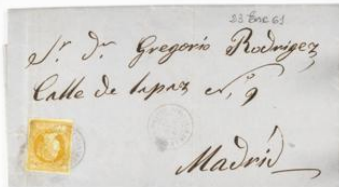 23 Ene 61
Sr. Dn. Gregorio Rodrigez
Calle de lapaz Nº, 9
Madrid